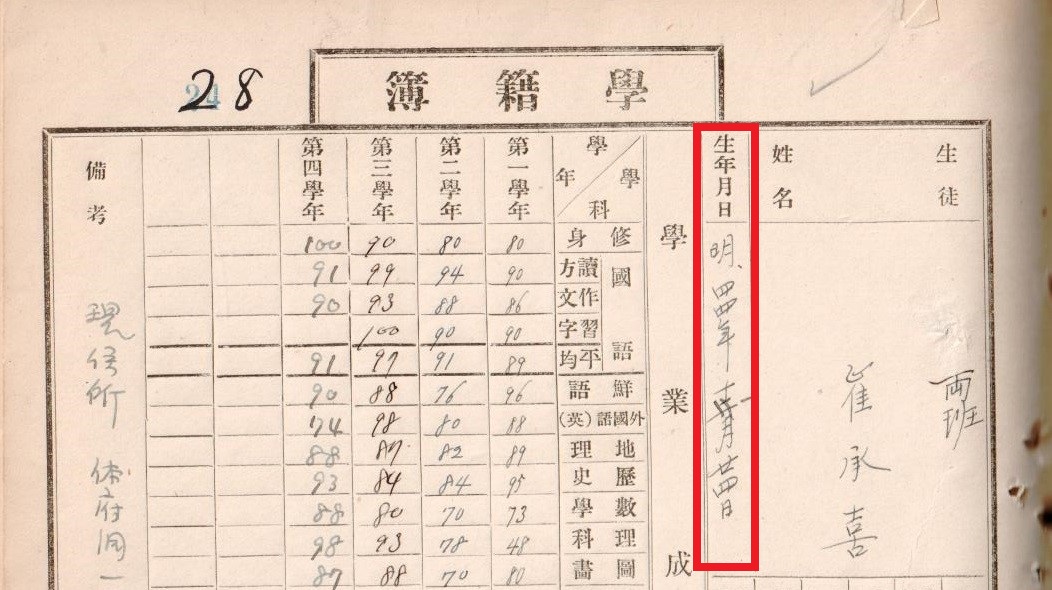 學籍簿
28
生徒 両班
姓名 崔承喜
生年月日 明、四四年 月廿四日
學業成
學科 學年 第一學年 第二學年 第三學年 第四學年
修身 80 80 90 100
國語
讀方 90 94 99 91
作文 86 88 93 90
習字 90 90 100
平均 89 91 97 91
鮮語 96 76 88 90
外國語(英) 88 80 98 74
地理 89 82 87 88
歷史 95 84 84 93
數學 73 70 80 88
理科 48 78 93 98
圖畵 80 70 88 87
備考 現住所 体府洞一